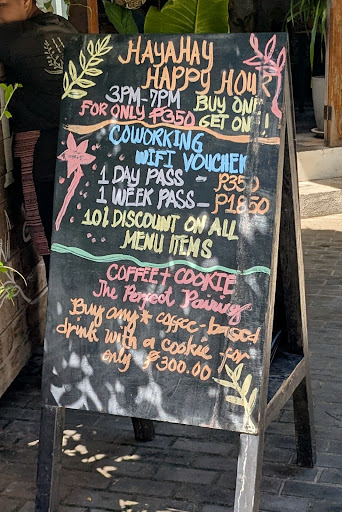 HAYAHAY
HAPPY HOUR
3PM-7PM BUY ONE
FOR ONLY ₱350 GET ONE!
COWORKING
WIFI VOUCHER
1 DAY PASS - ₱350
1 WEEK PASS - ₱1850
10% DISCOUNT ON ALL
MENU ITEMS
COFFEE + COOKIE
The Perfect Pairing
Buy any * coffee-based
drink with a cookie for
only ₱300.00